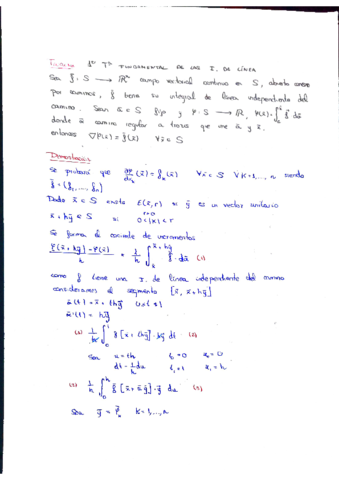 Teorema 1º Tª FUNDAMENTAL DE LAS I. DE LÍNEA
Sea f̄: S → ℝⁿ campo vectorial continuo en S, abierto conexo
por caminos, f̄ tiene su integral de línea independiente del
camino. Sean ā ∈ S fijo y φ: S → ℝ, φ(x̄) = ∫ f̄ dᾱ
donde ᾱ camino regular a trozos que une ā y x̄,
entonces ∇φ(x̄) = f̄(x̄) ∀x̄ ∈ S
Demostración
Se probará que ∂φ/∂xₖ (x̄) = fₖ(x̄) ∀x̄ ∈ S ∀k=1,..., n siendo
f̄ = (f₁,..., fₙ)
Dado x̄ ∈ S existe E(x̄, r) si ȳ es un vector unitario
r>0
x̄ + hȳ ∈ S si 0<|h|<r
Se forma el cociente de incrementos
φ(x̄+hȳ) - φ(x̄) / h = 1/h ∫ₓ̄^(x̄+hȳ) f̄ · dᾱ (1)
como f̄ tiene una I. de línea independiente del camino
consideramos el segmento [x̄, x̄+hȳ]
ᾱ(t) = x̄ + thȳ 0≤t≤1
ᾱ'(t) = hȳ
(1) 1/h ∫₀¹ f̄ [x̄ + thȳ] · hȳ dt (2)
Sea u = th t₀=0 u₀=0
dt = 1/h du t₁=1 u₁=h
(2) 1/h ∫₀ʰ f̄ [x̄ + uȳ] · ȳ du (3)
Sea ȳ = ēₖ k=1,..., n